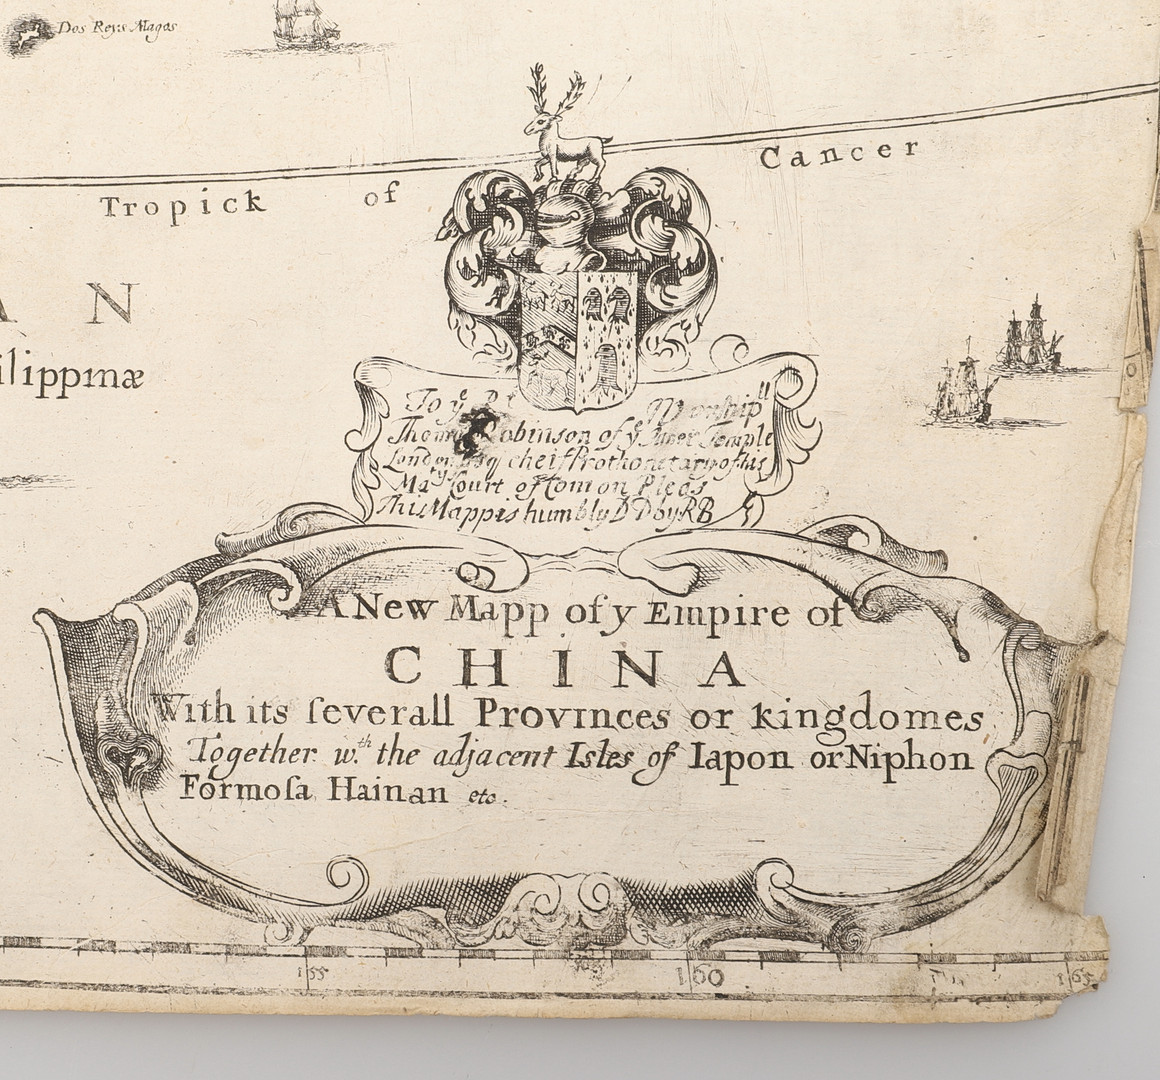 Dos Reys Magos
Tropick of Cancer
A N
ilippinæ
To yͤ Rᵗ Worshipˡˡ
Thomas Robinson of yͤ Inner Temple
London Esqʳ cheif Prothonetary of his
Maᵗʸˢ Court of Comon Pleas
This Mapp is humbly D D by RB
A New Mapp of y Empire of
CHINA
With its ſeverall Provinces or kingdomes
Together wᵗʰ. the adjacent Isles of Iapon or Niphon
Formoſa Hainan etc.
155 160 165